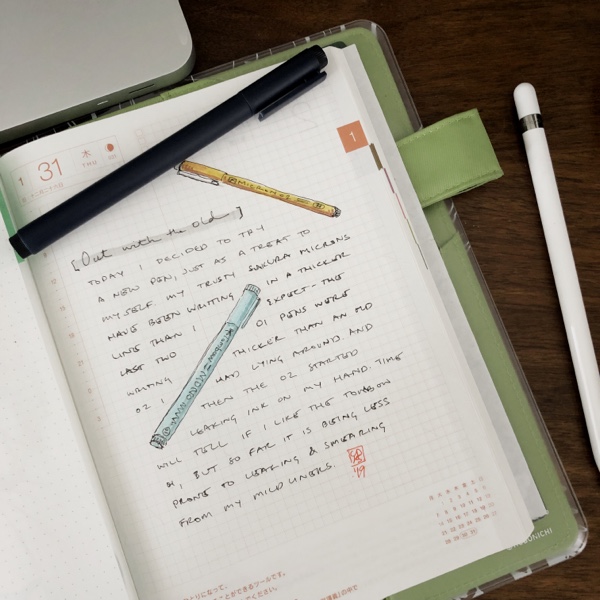 1 31 木
THU
1
[Out with the old]
TODAY I DECIDED TO TRY
A NEW PEN, JUST AS A TREAT TO
MYSELF. MY TRUSTY SAKURA MICRONS
HAVE BEEN WRITING IN A THICKER
LINE THAN I EXPECT - THE
LAST TWO 01 PENS WERE
WRITING THICKER THAN AN OLD
02 I HAD LYING AROUND. AND
THEN THE 02 STARTED
LEAKING INK ON MY HAND. TIME
WILL TELL IF I LIKE THE TOMBOW
BUT SO FAR IT IS BEING LESS
PRONE TO LEAKING & SMEARING
FROM MY MILDLINERS.
'19